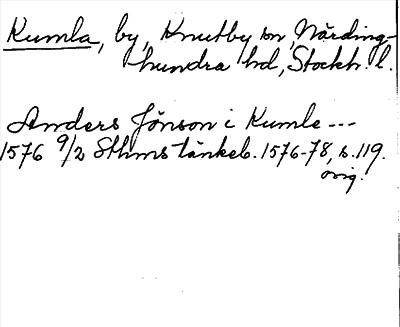 Kumla, by, Knutby sn, Närding-
hundra hd, Stockh. l.
Anders Jönson i Kumle ---
1576 9/2 Sthms tänkeb. 1576-78, s. 119.
orig.